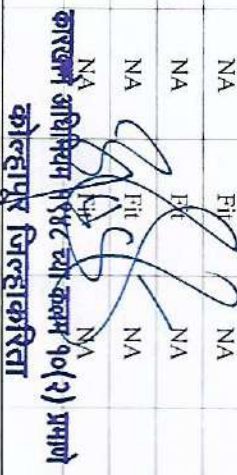 NA Fit NA
NA Fit NA
NA Fit NA
NA Fit NA
कारखाने अधिनियम १९४८ च्या कलम १०(२) प्रमाणे
कोल्हापूर जिल्हाकरिता